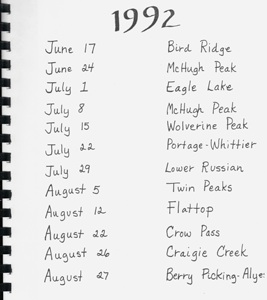 1992
June 17 Bird Ridge
June 24 McHugh Peak
July 1 Eagle Lake
July 8 McHugh Peak
July 15 Wolverine Peak
July 22 Portage-Whittier
July 29 Lower Russian
August 5 Twin Peaks
August 12 Flattop
August 22 Crow Pass
August 26 Craigie Creek
August 27 Berry Picking-Alye